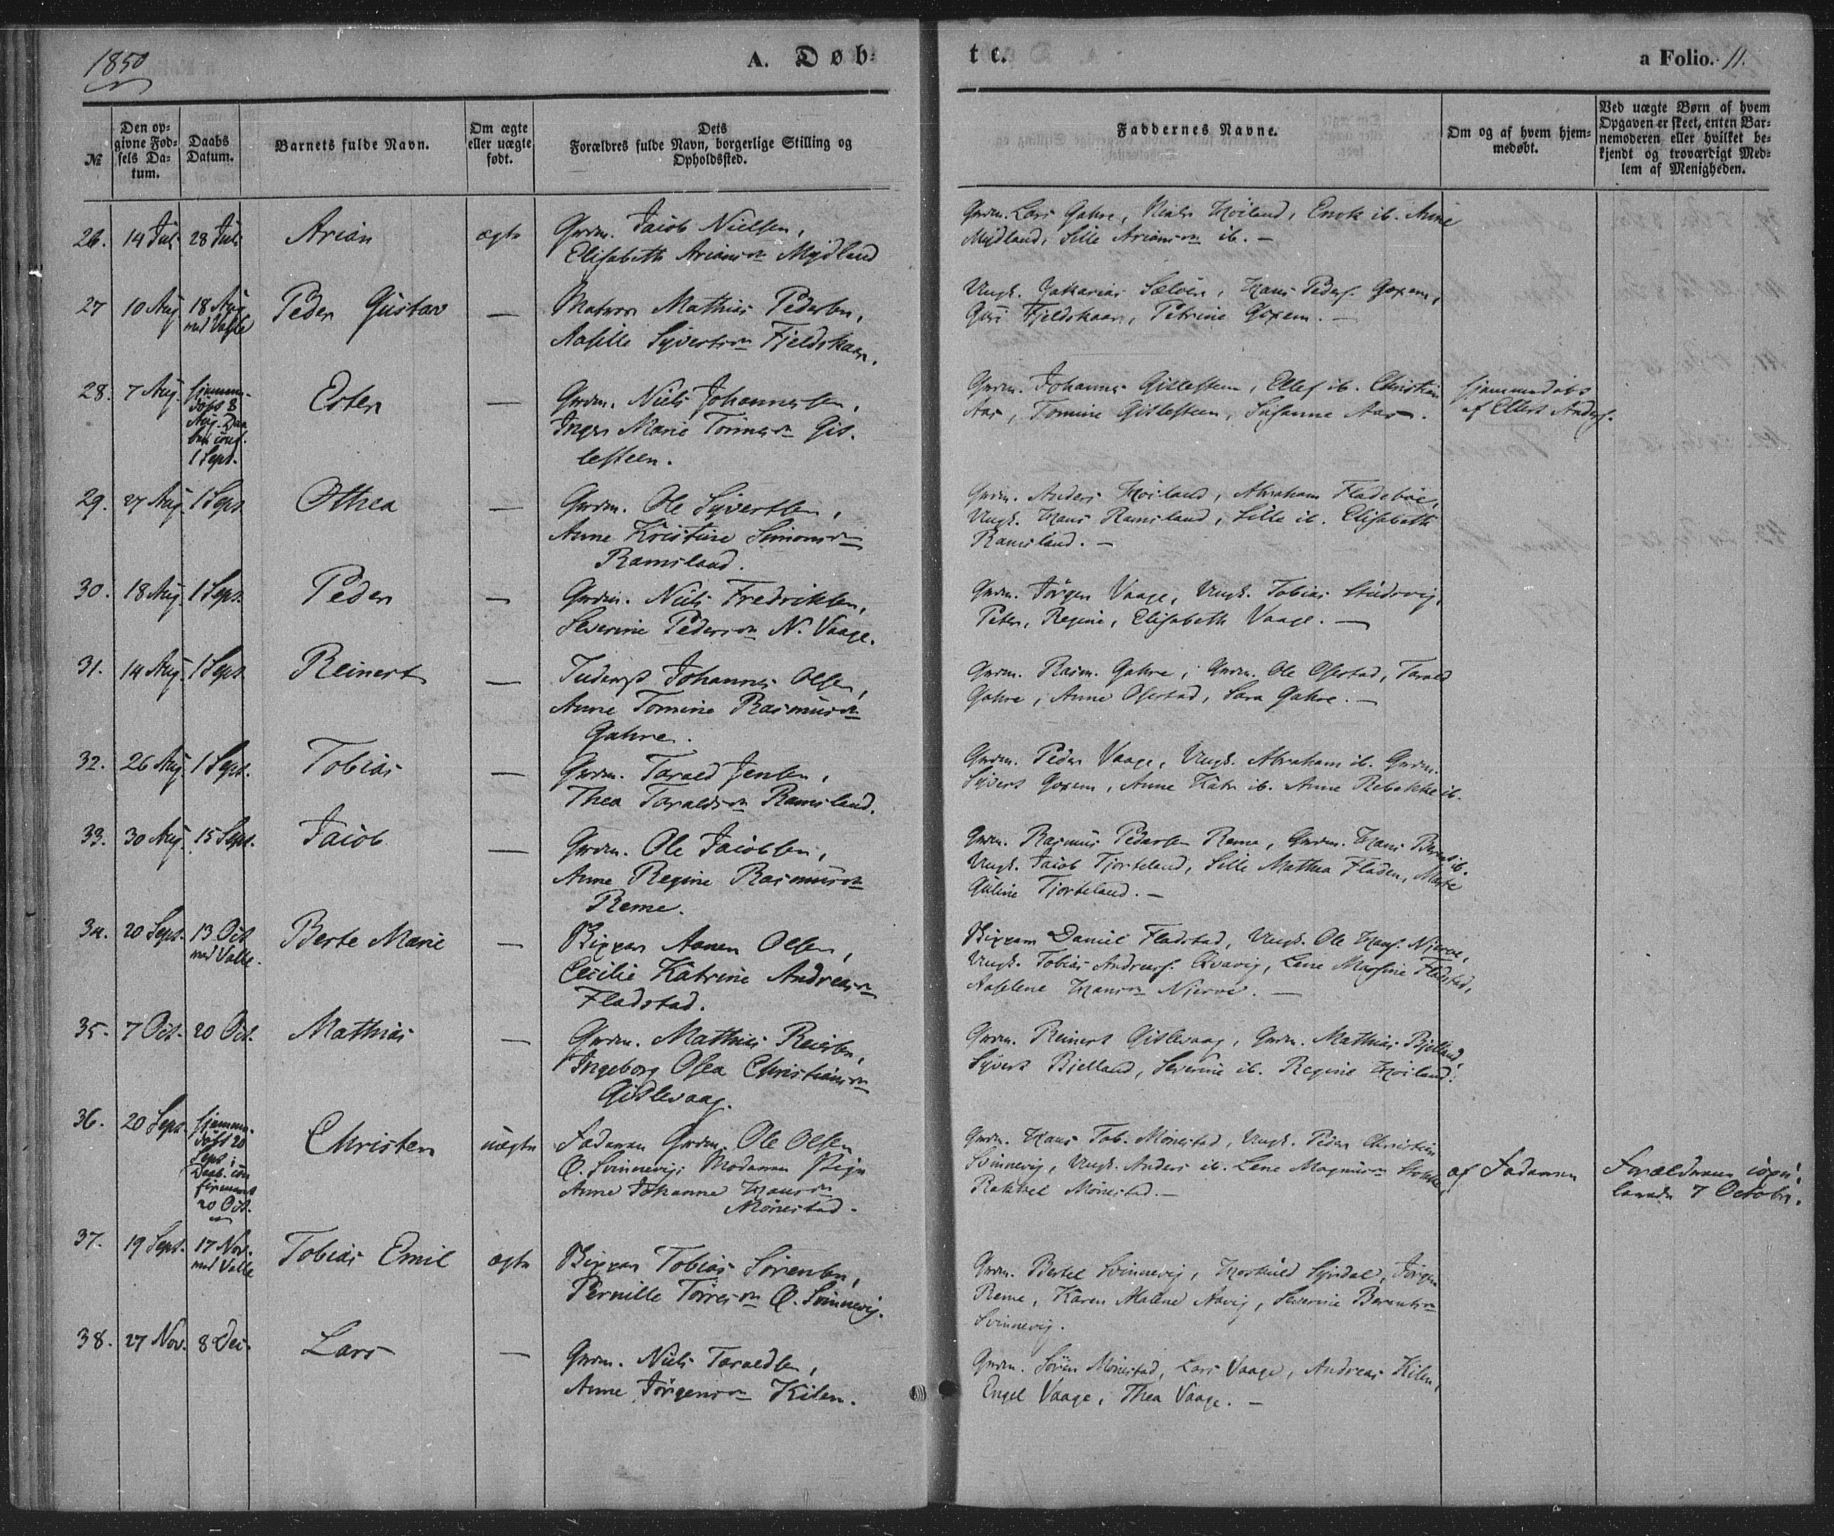 1850
A. Døb-
te.
a Folio. 11.
№
Den op-
givne Fød-
sels Da-
tum.
Daabs
Datum.
Barnets fulde Navn.
Om ægte
eller uægte
født.
Dets
Forældres fulde Navn, borgerlige Stilling og
Opholdssted.
Faddernes Navne.
Om og af hvem hjem-
medøbt.
Ved uægte Børn af hvem
Opgaven er skeet, enten Bar-
nemoderen eller hvilket be-
kjendt og troværdigt Med-
lem af Menigheden.
26. 14 Jul. 28 Jul. Arian ægte Grdm. Jacob Nielsen,
Elisabeth Mydland
Grdm. Lars Gahre, Niels Høiland, Enok ib. Anne
Mydland, Sille ib. —
27 10 Aug 18 Aug
ved Valle
Peder Gustav — Matros Mathias Pedersen,
Aasille Fjeldskaar.
Ungk. Zakarias Hans Peders. Goxem,
Guri Fjeldskaar, Petrine Goxem. —
28. 7 Aug. hjemme-
døbt 8
Aug. Daa-
ben conf.
1 Sept.
Esten — Grdm. Niels Johannesen,
Inger Marie Gis-
lesteen.
Grdm. Johannes Gislesteen, Ellef ib. Christian
Aas, Tomine Gislesteen, Susanne Aas.
hjemmedøbt
af Ellert Anders.
29. 27 Aug. 1 Sept. Othea — Grdm. Ole Syvertsen,
Anne Kristine
Ramsland.
Grdm. Anders Høiland, Abraham Fladebøe,
Ungk. Hans Ramsland, Sille ib. Elisabeth
Ramsland. —
30. 18 Aug. 1 Sept. Peder — Grdm. Niels Fredriksen,
Severine N. Vaage.
Grdm. Jørgen Vaage, Ungk. Tobias
Peter, Regine, Elisabeth Vaage. —
31. 14 Aug 1 Sept. Reinert — Johannes Olsen,
Anne Tomine
Gahre.
Grdm. Rasm. Gahre, Grdm. Ole Osestad, Tarald
Gahre, Anne Osestad, Sara Gahre. —
32. 26 Aug 1 Sept. Tobias — Grdm. Tarald Jensen,
Thea Ramsland.
Grdm. Peder Vaage, Ungk. Abraham ib. Grdm.
Syvert Goxem, Anne Katr. ib. Anne Rebekke ib.
33. 30 Aug. 15 Sept. Jacob — Grdm. Ole Jacobsen,
Anne Regine
Reme.
Grdm. Rasmus Pedersen Reme, Grdm. Hans ib.
Ungk. Jacob Tjorteland, Sille Mathea Fladen,
Guline Tjorteland. —
34. 20 Sept. 13 Oct
ved Valle.
Berte Marie — Skipper Aanen Olsen,
Cecilie Katrine
Fladstad.
Skipper Daniel Fladstad, Ungk. Ole Hans. Njerve,
Ungk. Tobias Andreas. Lene Fladstad,
Aaselene Njerve. —
35. 7 Oct. 20 Oct. Mathias — Grdm. Mathias Reiersen,
Ingeborg Osea
Gislevaag.
Grdm. Reinert Gislevaag, Grdm. Mathias Bjelland,
Syvert Bjelland, Severine ib. Regine Høiland.
36. 20 Sept. hjemme-
døbt 20
Sept;
Daab. con
firmeret
20 Oct.
Christen uægte Faderen Grdm. Ole Olsen
Ø. Svinnevig; Moderen Pige
Anne Johanne
Mønestad.
Grdm. Hans Tob. Mønestad, Ungk. Peder Christian
Svinnevig, Ungk. Anders ib. Lene
Rakkel Mønestad. —
af Faderen
Forældrene
7 October.
37. 19 Sept. 17 Nov.
ved Valle
Tobias Emil ægte Skipper Tobias Sørensen,
Pernille Ø. Svinnevig.
Grdm. Bertel Svinnevig, Syrdal, Jørgen
Reme, Karen Malene Aavig, Severine
Svinnevig.
38. 27 Nov. 8 Dec. Lars — Grdm. Niels Taraldsen,
Anne Kilen.
Grdm. Søren Mønestad, Lars Vaage, Andreas Kilen,
Engel Vaage, Thea Vaage. —